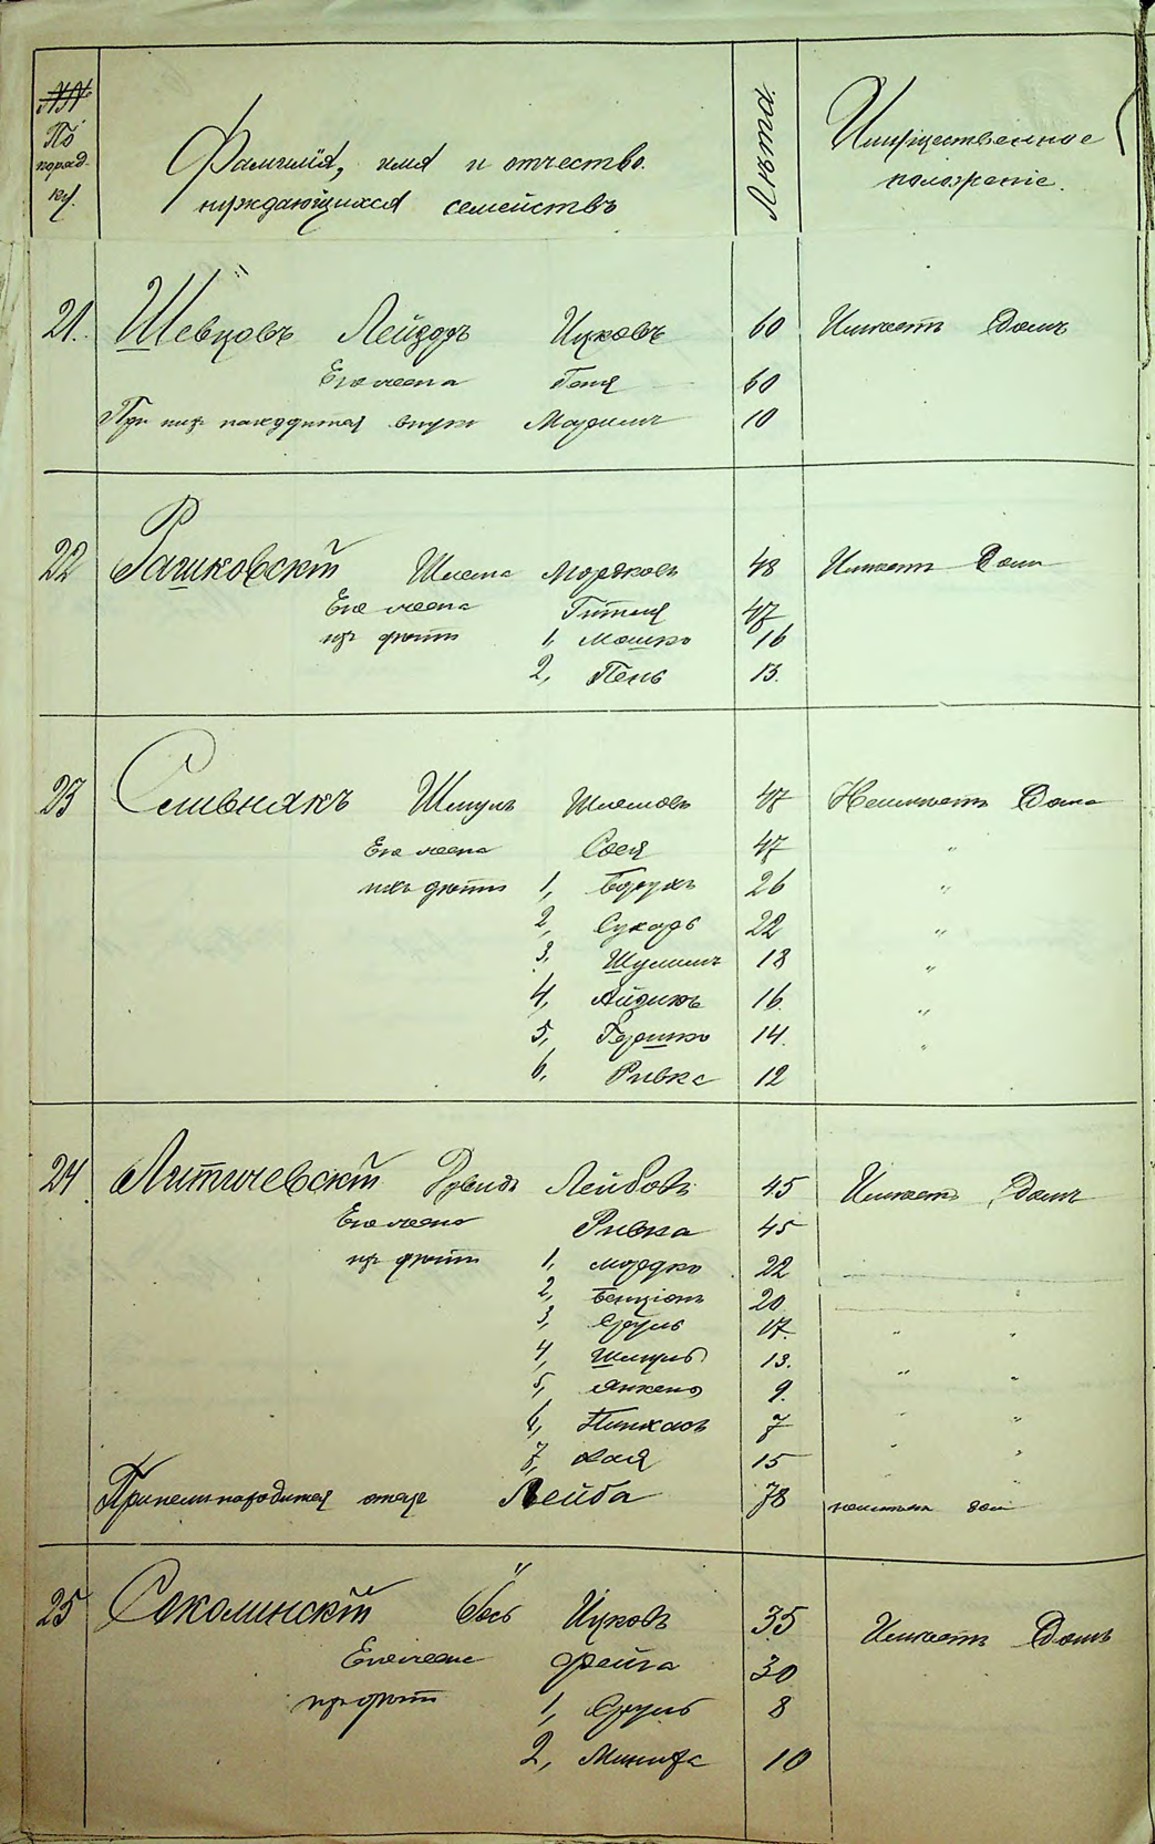 №№ По поряд- ку.
Фамилія, имя и отчество нуждающихся семействъ
Лѣта.
Имущественное положеніе.
21. Шевцовъ Лейзоръ Ицковъ 60 Имѣетъ Домъ
Его жена Геня 60
При нихъ находится внукъ Мордхе 10
22 Рашковскій Шлема Мордковъ 48 Имѣетъ Домъ
Его жена Гителя 47
их дѣти 1, Мошко 16
2, Пень 13.
23 Сливнякъ Шмуль Шлемовъ 47 Неимѣетъ Дома
Его жена Сося 47 "
ихъ дѣти 1, Борухъ 26 "
2, Сухаръ 22 "
3, Шулимъ 18 "
4, Айзикъ 16. "
5, Гершко 14. "
6, Ривка 12
24. Литичевскій Дувидъ Лейбовъ 45 Имѣетъ Домъ
Его жена Ривка 45
их дѣти 1, Мордко 22
2, Бенціонъ 20 "
3, Сруль 17. " "
4, Шмуль 13. " "
5, Янкель 9. " "
6, Пинхасъ 7 " "
7, Хая 15 "
При немъ находится отецъ Лейба 78 неимѣетъ дом
25 Соколинскій Іось Ицковъ 35 Имѣетъ Домъ
Его жена Фейга 30
их дѣти 1, Сруль 8
2, Миндза 10